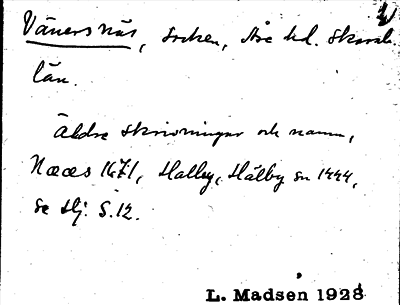 Vänersnäs, socken, Åse hd. Skarab.
län.
Äldre skrivningar och namn,
Næs 1671, Halby, Hälby sn 1444,
se Hj. S.12.
L. Madsen 1928